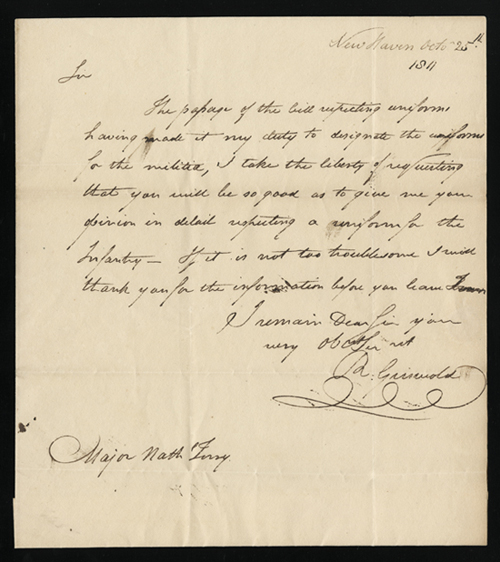 New Haven Octo 25th
1811
Sir
The passage of the bill respecting uniforms
having made it my duty to designate the uniforms
for the militia, I take the liberty of requesting
that you will be so good as to give me your
opinion in detail respecting a uniform for the
Infantry— If it is not too troublesome I will
thank you for the information before you leave Town
I remain Dear Sir your
very Obdt Servt
R. Griswold
Major Nath Terry